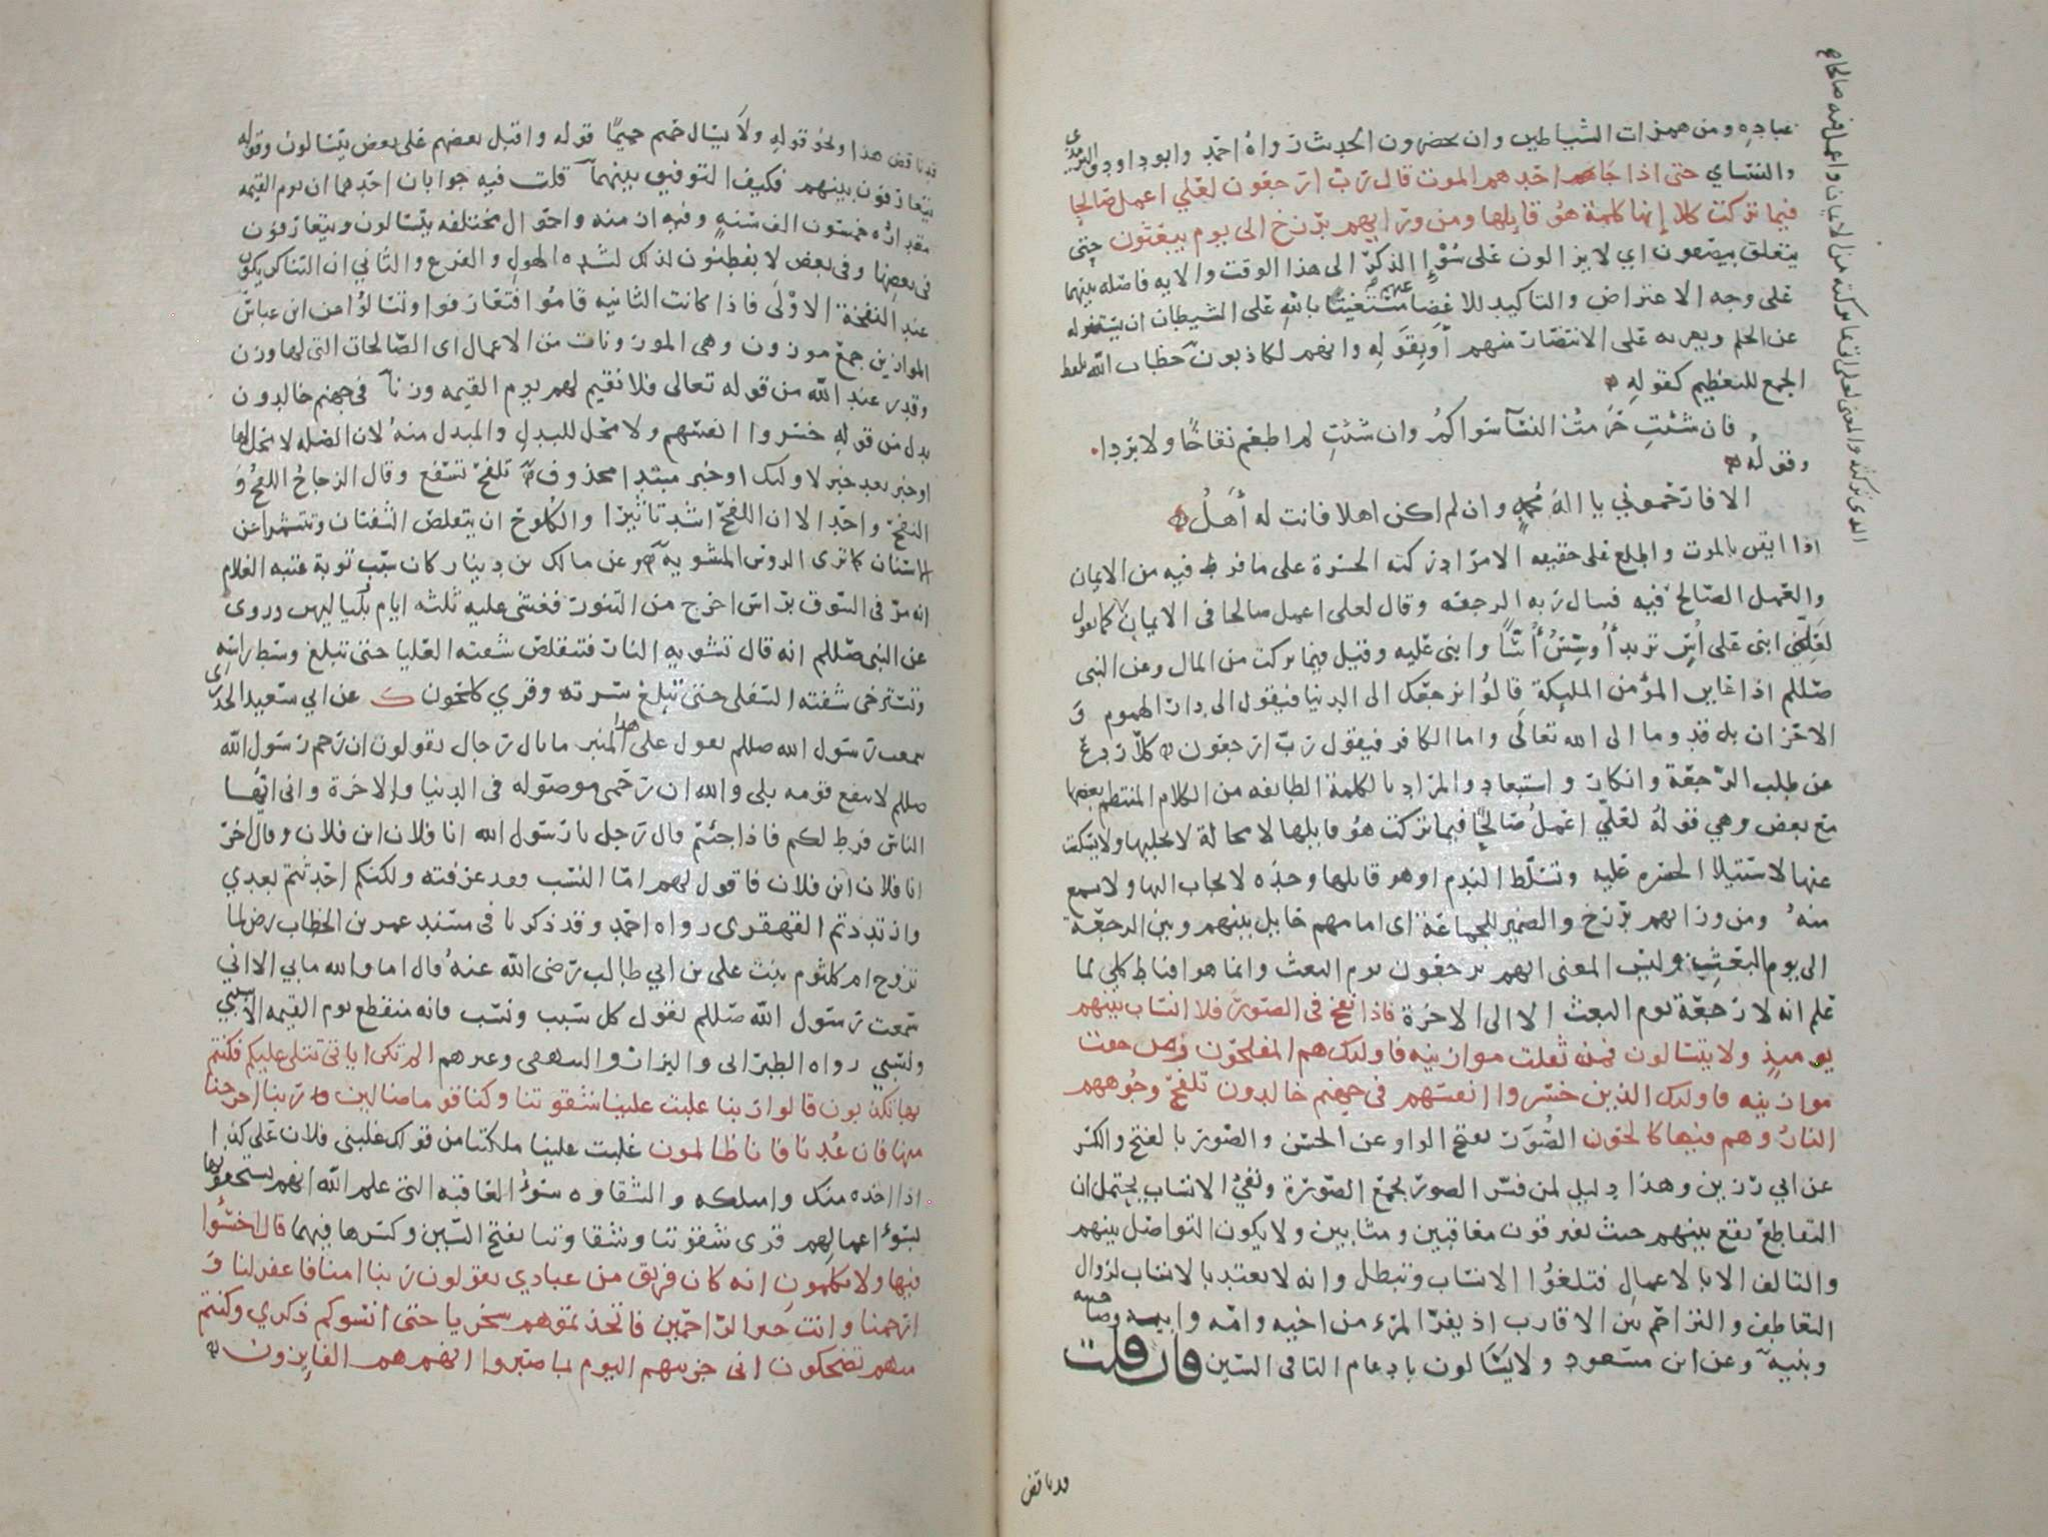 عباده ومن همزات الشياطين وان يحضرون الحديث رواه احمد وابو داود والترمذي
والنسائي حتى اذا جاء احدهم الموت قال رب ارجعون لعلي اعمل صالحا
فيما تركت كلا إنها كلمة هو قايلها ومن ورايهم برزخ الى يوم يبعثون حتى
يتعلق بيصفون اي لا يزالون على سوء الذكر الى هذا الوقت والايه فاصله بينهما
على وجه الاعتراض والتاكيد للاغضا عنهم مستعينا بالله على الشيطان ان يستزله
عن الحلم ويغريه على الانتصار منهم أو بقوله وانهم لكاذبون خطاب الله بلفظ
الجمع للتعظيم كقوله
فان شئتِ حرمت النسآ سواكم وان شئتِ لم اطعم نقاخًا ولا بردا
وقوله
الا فارحموني يا اله محمدٍ وان لم اكن اهلا فانت له أهلُ
اذا ايقن بالموت واطلع على حقيقه الامر ادركته الحسرة على ما فرط فيه من الايمان
والعمل الصالح فيه فسال ربه الرجعه وقال لعلى اعمل صالحا في الايمان كما تقول
لعلي ابنى على أسٍّ تريد أُوسّسُ أُسًّا وابنى عليه وقيل فيما تركت من المال وعن النبى
صللم اذا عاين المؤمن المليكة قالوا نرجعك الى الدنيا فيقول الى دار الهموم و
الاحزان بل قدوما الى الله تعالى واما الكافر فيقول رب ارجعون كلا ردع
عن طلب الرجعة وانكار واستبعاد والمراد بالكلمة الطايفه من الكلام المنتظم بعضها
مع بعض وهي قوله لعلي اعمل صالحًا فيما تركت هو قايلها لا محالة لا يخليها ولا يسكت
عنها لاستيلا الحسره عليه وتسلط الندم او هو قايلها وحده لا يجاب اليها ولا تسمع
منه ومن ورايهم برزخ والضمير للجماعة اى امامهم حايل بينهم وبين الرجعة
الى يوم البعث وليس المعنى انهم يرجعون يوم البعث وانما هو اقناط كلي لما
علم انه لا رجعة يوم البعث الا الى الاخرة فاذا نفخ فى الصور فلا انساب بينهم
يوميذٍ ولا يتسالون فمن ثقلت موازينه فاولئك هم المفلحون ومن خفت
موازينه فاولئك الذين خسروا انفسهم فى جهنم خالدون تلفح وجوههم
النار وهم فيها كالحون الصُّوَر بفتح الواو عن الحسن والصور بالفتح والكسر
عن ابي رزين وهذا دليل لمن فسر الصور بجمع الصورة ونفي الانساب يحتمل ان
التقاطع يقع بينهم حيث يفترقون معاقبين ومثابين ولا يكون التواصل بينهم
والتالف الا بالاعمال فتلغوا الانساب وتبطل وانه لا يعتد بالانساب لزوال
التعاطف والتراحم بين الاقارب اذ يفر المرء من اخيه وامه وابيه وصاحبته
وبنيه وعن ابن مسعود ولا يسّالون بادغام التا فى السين فان قلت
قد ناقض
الذى تركته والمعنى لعلى اتى بما تركته من الايمان واعمل فيه صالحا
قد ناقض هذا ولحو قوله ولا يسال حميم حميما قوله واقبل بعضهم على بعض يتسالون وقوله
يتعارفون بينهم فكيف التوفيق بينهما قلت فيه جوابان احدهما ان يوم القيمه
مقداره خمسون الف سنه وفيه ازمنه واحوال مختلفه يتسالون ويتعارفون
فى بعضها وفى بعض لا يفطنون لذلك لشده الهول والفزع والثاني ان التناكر يكون
عند النفخة الاولى فاذا كانت الثانيه قاموا فتعارفوا وتسالوا عن ابن عباس
الموازين جمع موزون وهى الموزونات من الاعمال اى الصالحات التى لها وزن
وقدر عند الله من قوله تعالى فلا نقيم لهم يوم القيمه وزنا فى جهنم خالدون
بدل من قوله خسروا انفسهم ولا محل للبدل والمبدل منه لان الصله لا محل لها
او خبر بعد خبر لاولئك او خبر مبتدا محذوف تلفح تسفع وقال الزجاج اللفح و
النفح واحد الا ان اللفح اشد تاثيرا والكلوح ان يتقلص الشفتان وتتشمرا عن
الاسنان كما ترى الروس المشويه وعن مالك بن دينار كان سبب توبة عتبه الغلام
انه مر فى السوق براس اخرج من التنور فغشى عليه ثلثه ايام بلياليهن وروى
عن النبى صللم انه قال تشويه النار فتتقلص شفته العليا حتى تبلغ وسط راسه
وتسترخى شفته السفلى حتى تبلغ سرته وقري كلحون ك عن ابي سعيد الخدري
سمعت رسول الله صللم يقول على هذا المنبر ما بال رجال يقولون ان رحم رسول الله
صللم لا تنفع قومه بلى والله ان رحمى موصوله فى الدنيا والاخرة وانى ايها
الناس فرط لكم فاذا جئتم قال رجل يا رسول الله انا فلان ابن فلان وقال اخر
انا فلان ابن فلان فاقول لهم امّا النسب فقد عرفته ولكنكم احدثتم بعدي
وارتددتم القهقرى رواه احمد وقد ذكرنا فى مسند عمر بن الخطاب رض لما
تزوج ام كلثوم بنت على بن ابي طالب رضى الله عنه قال اما والله ما بي الا اني
سمعت رسول الله صللم يقول كل سبب ونسب فانه منقطع يوم القيمه الا سببي
ونسبي رواه الطبرانى والبزار والبيهقى وغيرهم الم تكن اياتى تتلى عليكم فكنتم
بها تكذبون قالوا ربنا غلبت علينا شقوتنا وكنا قوما ضالين ربنا اخرجنا
منها فان عُدنا فانا ظالمون غلبت علينا ملكتنا من قولك غلبنى فلان على كذا
اذا اخذه منك وامتلكه والشقاوه سوء العاقبه التى علم الله انهم يستحقونها
بسوء اعمالهم قرى شقوتنا وشقاوتنا بفتح الشين وكسرها فيهما قال اخسئوا
فيها ولا تكلمون انه كان فريق من عبادي يقولون ربنا امنا فاغفر لنا و
ارحمنا وانت خير الراحمين فاتخذتموهم سخريا حتى انسوكم ذكري وكنتم
منهم تضحكون انى جزيتهم اليوم بما صبروا انهم هم الفايزون